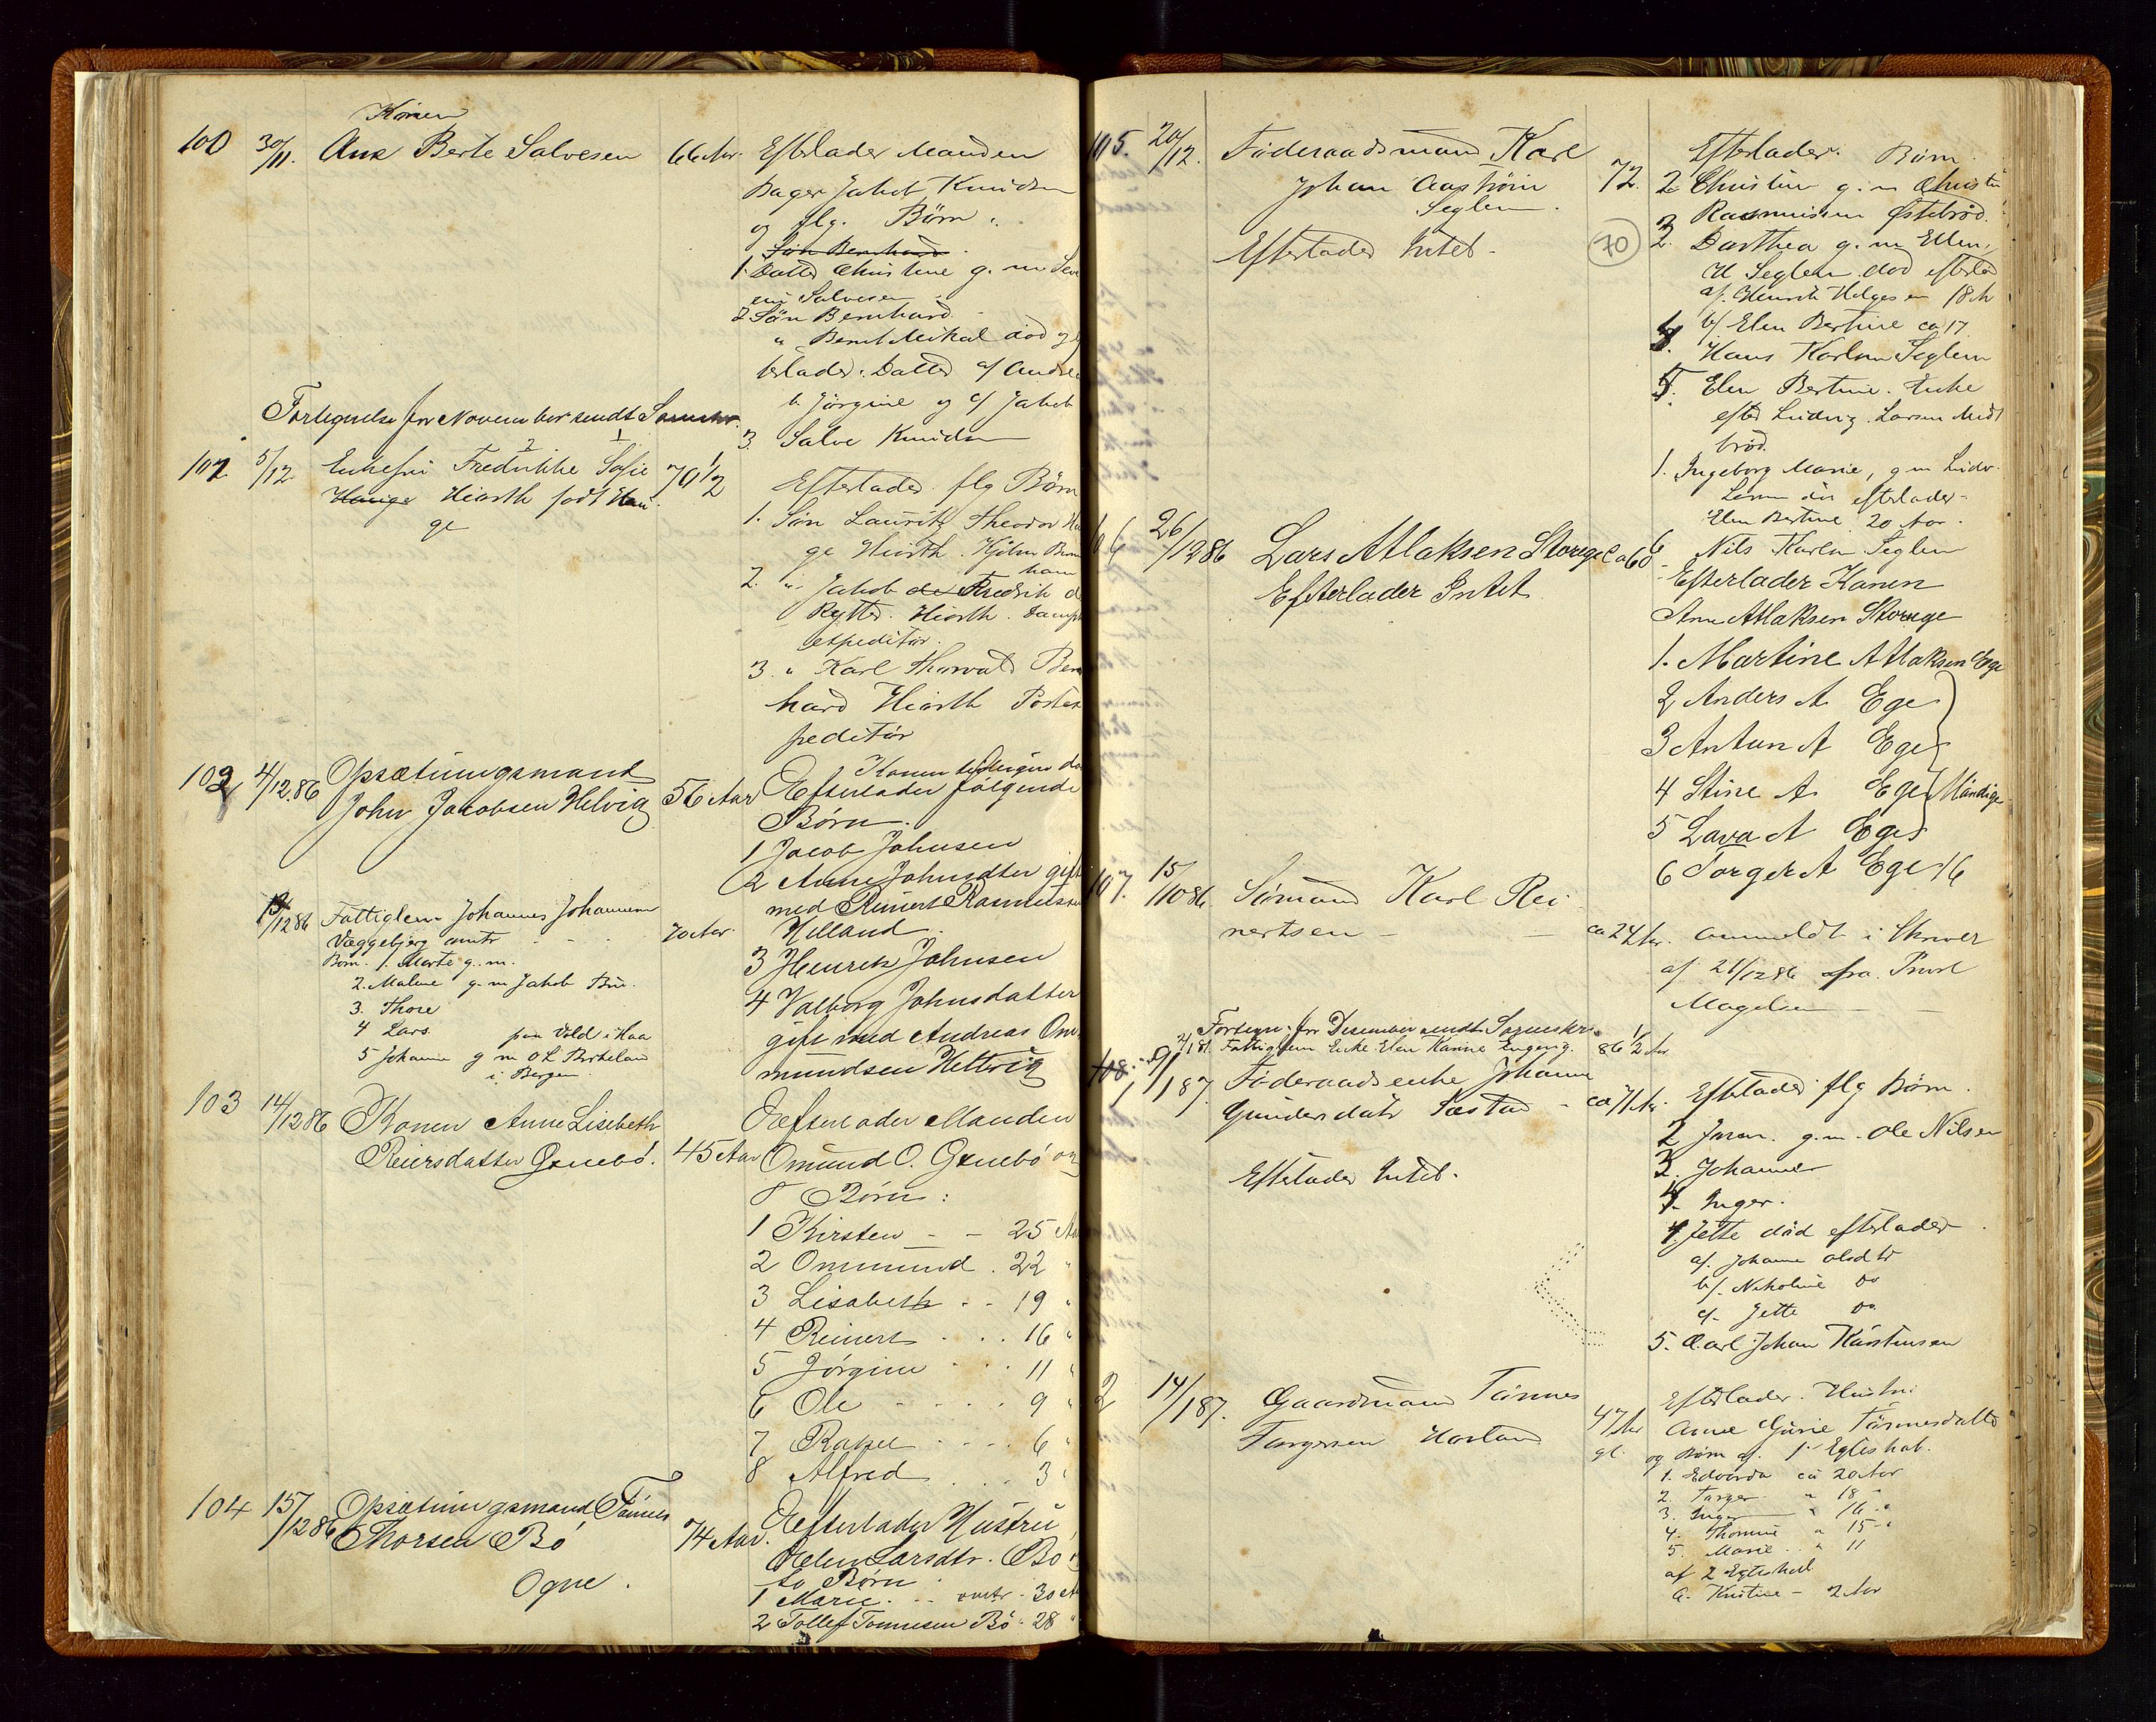 Konen
100 30/11. Ane Berte Salvesen 66 Aar. Efterlader Manden
Bager Jakob Knudsen
og flg. Børn.
Søn Bernhard
1. Datter Christine g. m.
Salvesen
2 Søn Bernhard
" Bernt Mikal død og
terlader. Datter a/ Andre
b. Jørgine og c/ Jakob
3. Salve Knudsen
Fortegnelse for November sendt
101 5/12 Enkefru Fredrikke Sofie 70 1/2
Hauge Hiorth født Hau
ge
Efterlader flg Børn
1. Søn Lauritz Theodor
ge Hiorth.
2. " Jakob Fredrik
Rytter. Hiorth.
expeditør.
3. " Karl Thorvald Bern
hard Hiorth Postex
peditør
102 4/12.86 Opsætningsmand
John Jacobsen Helvig 56 Aar
Efterlader følgende
Børn.
1 Jacob Johnsen
2 Anne Johnsdtter gift
med Reinert Rasmussen
Helland.
3 Henrik Johnsen
4 Valborg Johnsdatter
gift med Andreas Om
mundsen Helvig
13/12 86 Fattiglem Johannes Johannesen
Væggebjerg 70 Aar.
Børn. 1. Marte g. m.
2. Malene g. m Jakob
3. Thore
4 Lars. paa Vold i Haa
5 Johanne g m O L Birkeland
i Bergen.
103 14/12 86 Konen Anne Lisebeth
Reiersdatter Gruebø. 45 Aar
Efterlader Manden
Omund O. Gruebø og
8 Børn:
1 Kirsten - - 25 Aar
2 Ommund. 22 "
3 Lisabeth - - 19 "
4 Reinert . . . 16 "
5 Jørgine . . . 11 "
6 Ole . . . . 9 "
7 Rakel . . . . 6 "
8 Alfred . . . 3 "
104 15/12 86 Opsætningsmand Tønnes
Thorsen Bø 74 Aar.
Ogne.
Efterlader Hustru
Elen Larsdtr. Bø
to Børn
1 Marie. . . 30 A
2 Tollef Tønnesen Bø. 28 "
105. 20/12. Føderaadsmand Karl
Johan Aastrøm 72.
Seglem.
Efterlader Intet.
70
Efterlader. Børn.
2. Christine g. m
Rasmussen Østebrød.
3. Dorthea g. m Ellen
H Seglem død efterlad
a/. Henrik Helgesen 18 A
b/ Elen Bertine ca 17
4. Hans Karlsen Seglem
5. Elen Bertine. Enke
efter Ludvig. Larsen Midt
brød.
1. Ingeborg Marie, g m
efterlader
Elen Bertine 20 Aar.
6 Nils Karlsen Seglem
106 26/12 86 Lars Atlaksen Storege Ca 60
Efterlader Intet
Efterlader Konen
Ane Atlaksen Storege
1. Martine Atlaksen Ege
2 Anders A Ege
3 Antun A Ege
4 Stine A Ege Myndige
5 Lava A Ege
6 Torger A Ege 16
107. 15/10 86. Sømand Karl Rei
nertsen - ca 24 Aar.
Anmeldt i Skrivel
af 21/12 86 fra Provst
Magelsen
Fortegn. for Desember sendt Sorenskr.
Fattiglem Enke Elen Karine 86 1/2 Aar
108. 9/1 87. Føderaadsenke Johanne
Gundersdatr Sæstad - ca 71 Aar.
Efterlader Intet.
Efterlader flg Børn.
2 g. m. Ole Nilsen
3. Johannes
4. Inger.
4. Jette død efterlader
a/. Johanne Olsdtr
b/. Nikoline do
c/. Jette do.
5. Carl Johan Karstensen
2 14/1 87. Gaardmand Tønnes
Torgersen Horland 47 Aar
gl.
Efterlader. Hustru
Anne Gurie Tønnesdatter
og Børn af. 1' Egteskab.
1. Edvarda ca 20 Aar
2. Torger " 18 "
3. Inger " 16 "
4. Thomine " 15 "
5. Marie " 11
af 2 Egteskab
6. Kristine - 2 Aar